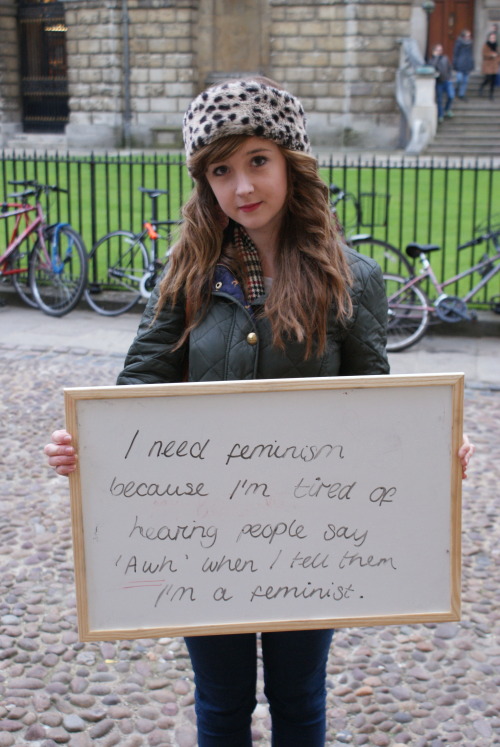 I need feminism
because I'm tired of
hearing people say
'Awh' when I tell them
I'm a feminist.